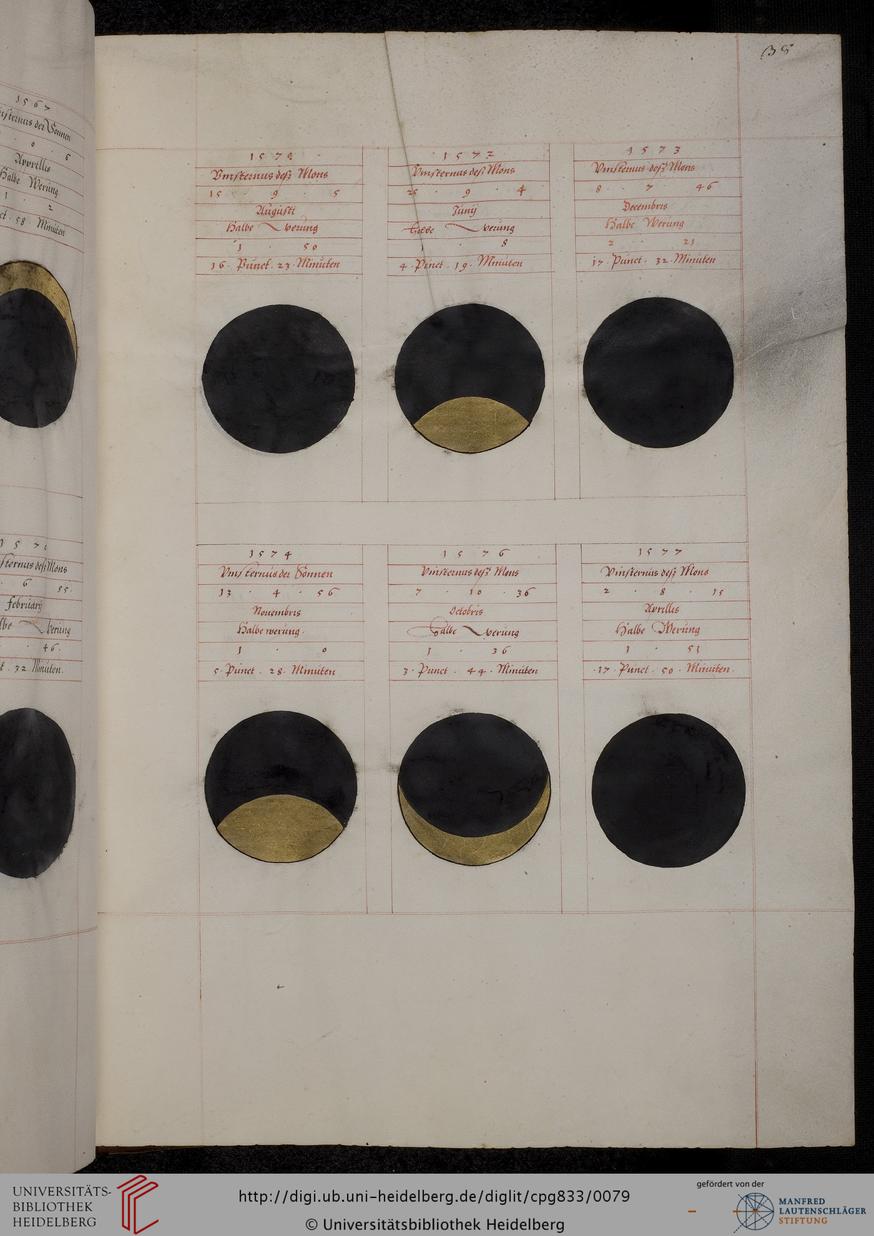 1567
0 6
Apprillis
Halbe Werung
1 2
58 Minuten
157
6 55
februarij
Werung
46
32 Minuten
1574
Vinsternus desz Mons
15 9 5
Augusti
Halbe werung
1 50
16 Punct 23 Minuten
1572
Vinsternus desz Mons
25 9 4
Junij
werung
8
4 Punct 19 Minuten
1573
Vinsternus desz Mons
8 7 46
Decembris
Halbe Werung
2 21
17 Punct 32 Minuten
1574
Vinsternus der Sonnen
13 4 56
Nouembris
Halbe werung
1 0
5 Punct 28 Minuten
1576
Vinsternus desz Mons
7 10 36
Octobris
Halbe werung
1 36
3 Punct 44 Minuten
1577
Vinsternus desz Mons
2 8 15
Aprillis
Halbe Werung
1 51
17 Punct 50 Minuten
UNIVERSITÄTS-
BIBLIOTHEK
HEIDELBERG
http://digi.ub.uni-heidelberg.de/diglit/cpg833/0079
© Universitätsbibliothek Heidelberg
gefördert von der
MANFRED
LAUTENSCHLÄGER
STIFTUNG